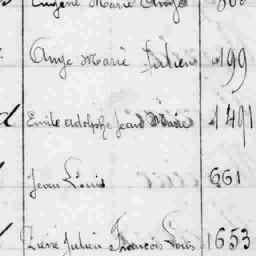 Eugène Marie
Ange Marie Julien 199
Emile Adolphe Jean Marie 1491
Jean Louis 661
Pierre Julien François Louis 1653